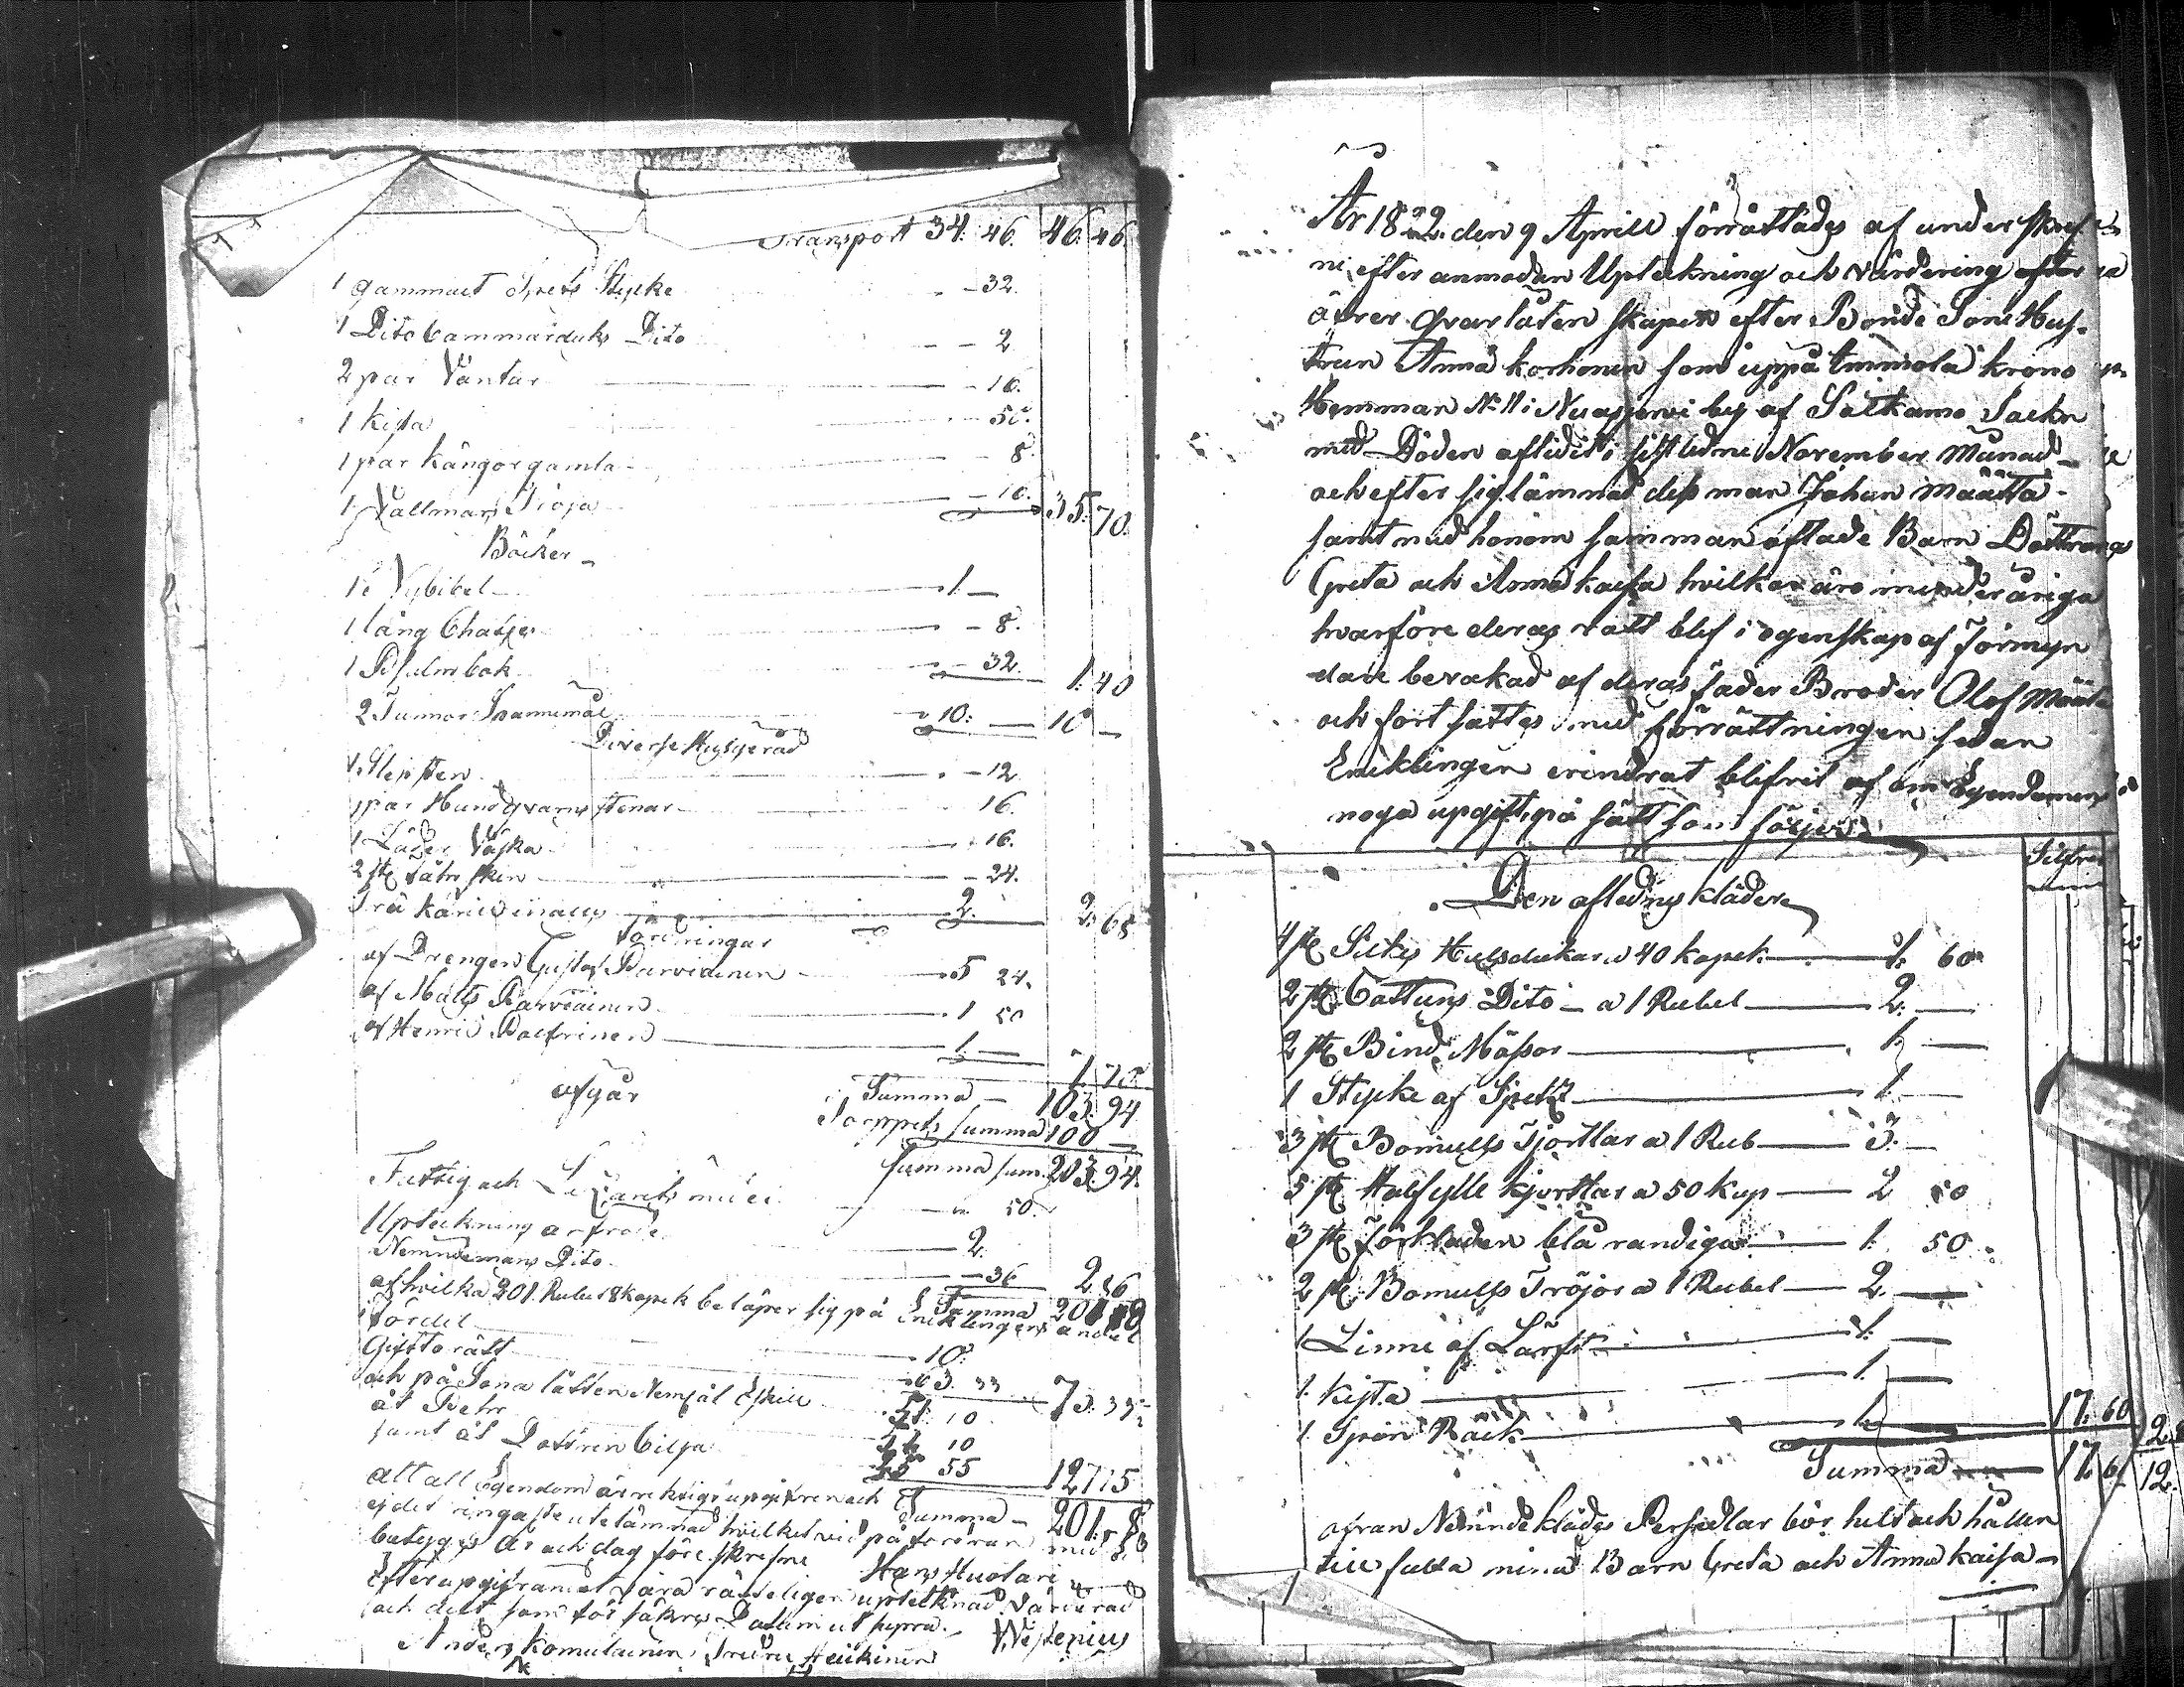 Transport 34. 46. 46. 46.
1 gammalt Spets Stycke - 32.
1 Dito Cammarduks Dito - - 2
2 par Vantar - 16.
1 Kista - 50.
1 par Kängor gamla - 8
1 Vallmars Tröja - 10. 35. 70.
Böcker
1 Nybibel 1. -
1 lång Chatjes - 8.
1 Psalmbok - 32. 1. 40
2 Tunnor Spannemål 10. - 10 -
Diverse Husgeråd
1 Slipsten - 12
1 par Handqvarns stenar - 16.
1 Läder Väska - 16.
2 st fähr skin - 24.
Trä käril inalles 2. 2. 68
Fordringar
af Drengen Gustaf Parviainen 5 24.
af Matts Parviainen 1 50
af Henric 1 -
7. 70.
Summa - 103. 94
afgår
summa 100 -
Summa sum. 203. 94.
Fattig och - 50.
Upteckning arfvode 2.
Nemndemans Dito - 36 2 86
Summa 201 18
af hvilka 201. Rubel 8 kopek belöper sig på Enklingens andel
Fördel 10.
Giftorätt 63. 33 73. 33
och på Sona lotten Nemligt Eskill 51. 10
åt Petr 10
samt åt Dottren Cilja 25 55 127 75
Summa - 201. 8
att all Egendom är riktigt upgifven och
ej det ringaste utelämnad hvilket vid på fordran med Ed
betyges År och dag föreskrefne Hans Huotari
Efter upgifvandet vara rätteligen uptecknad Värderad
och delt som för säkres Datum ut supra. Westenius
Anders Komulainen, Fredric Heikinen
År 1822. den 9 Aprill förrättades af under skref
ne, efter anmodan Upteckning och värdering efter
öfver qvarlåtenskapen efter Bonde Sone Hus-
trun Anna Korhonen som uppå Emmola krono
Hemman No 11 i Nuasjervi by af Sotkamo Sockn
med Döden aflidit i sistledne November Månad
och efter sig lämnad dess man Johan Määttä
samt med honom samman aflade Barn Döttrarne
Greta och Anna kaisa hvilka äro minderåriga
hvarföre deras rätt blef i egenskap af Förmyn
dare bevakad af deras fader Broder Olof Määttä
och fort sattes med förrättningen sedan
Enklingen erindrat blifvit af om Egendomens
noga upgift, på sätt som följer.
Silfver
Den aflednes kläder
4 st Silkes Halsdukar a 40 kopek 1. 60
2 st Cattuns Dito - a 1 Rubel 2. -
2 st Bind Mössor 1. -
1 Stycke af Spetz 1. -
3 st Bomulls Tjortlar a 1 Rub 3. -
5 st Halfylle kjortlar a 50 kop 2 50
3 st Förkläden blå randiga 1. 50
2 st Bomulls Tröjor a 1 Rubel 2. -
1 Linne af Lärft 1. -
1. Kista 1. -
1. Spån Räck 1. - 17. 60
Summa 17 60
ofvan Nemnde klädes Persedlar bör helt och hållen
till falla mina Barn Greta och Anna Kaisa -